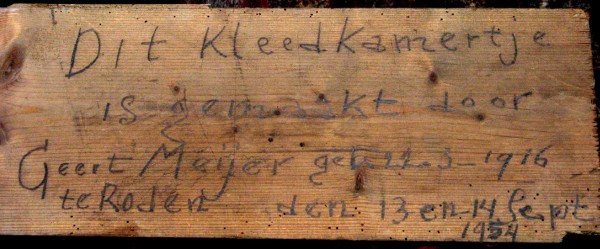 Dit Kleedkamertje
is gemaakt door
Geert Meijer geb. 22-3-1916
te Roden den 13 en 14 Sept
1954